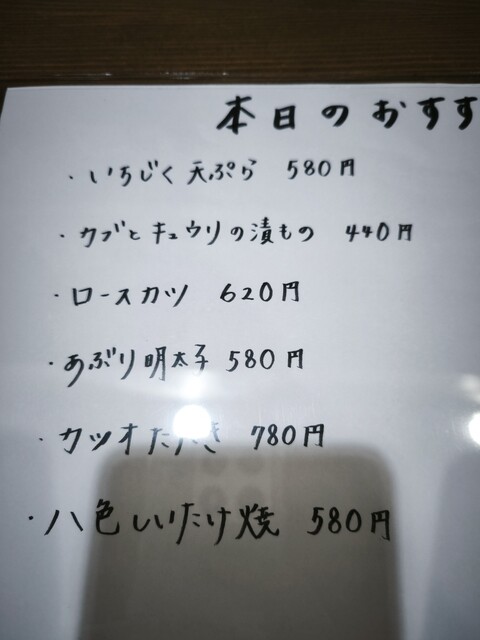 本日のおすす
・いちじく天ぷら 580円
・カブとキュウリの漬もの 440円
・ロースカツ 620円
・あぶり明太子 580円
・カツオたたき 780円
・八色しいたけ焼 580円